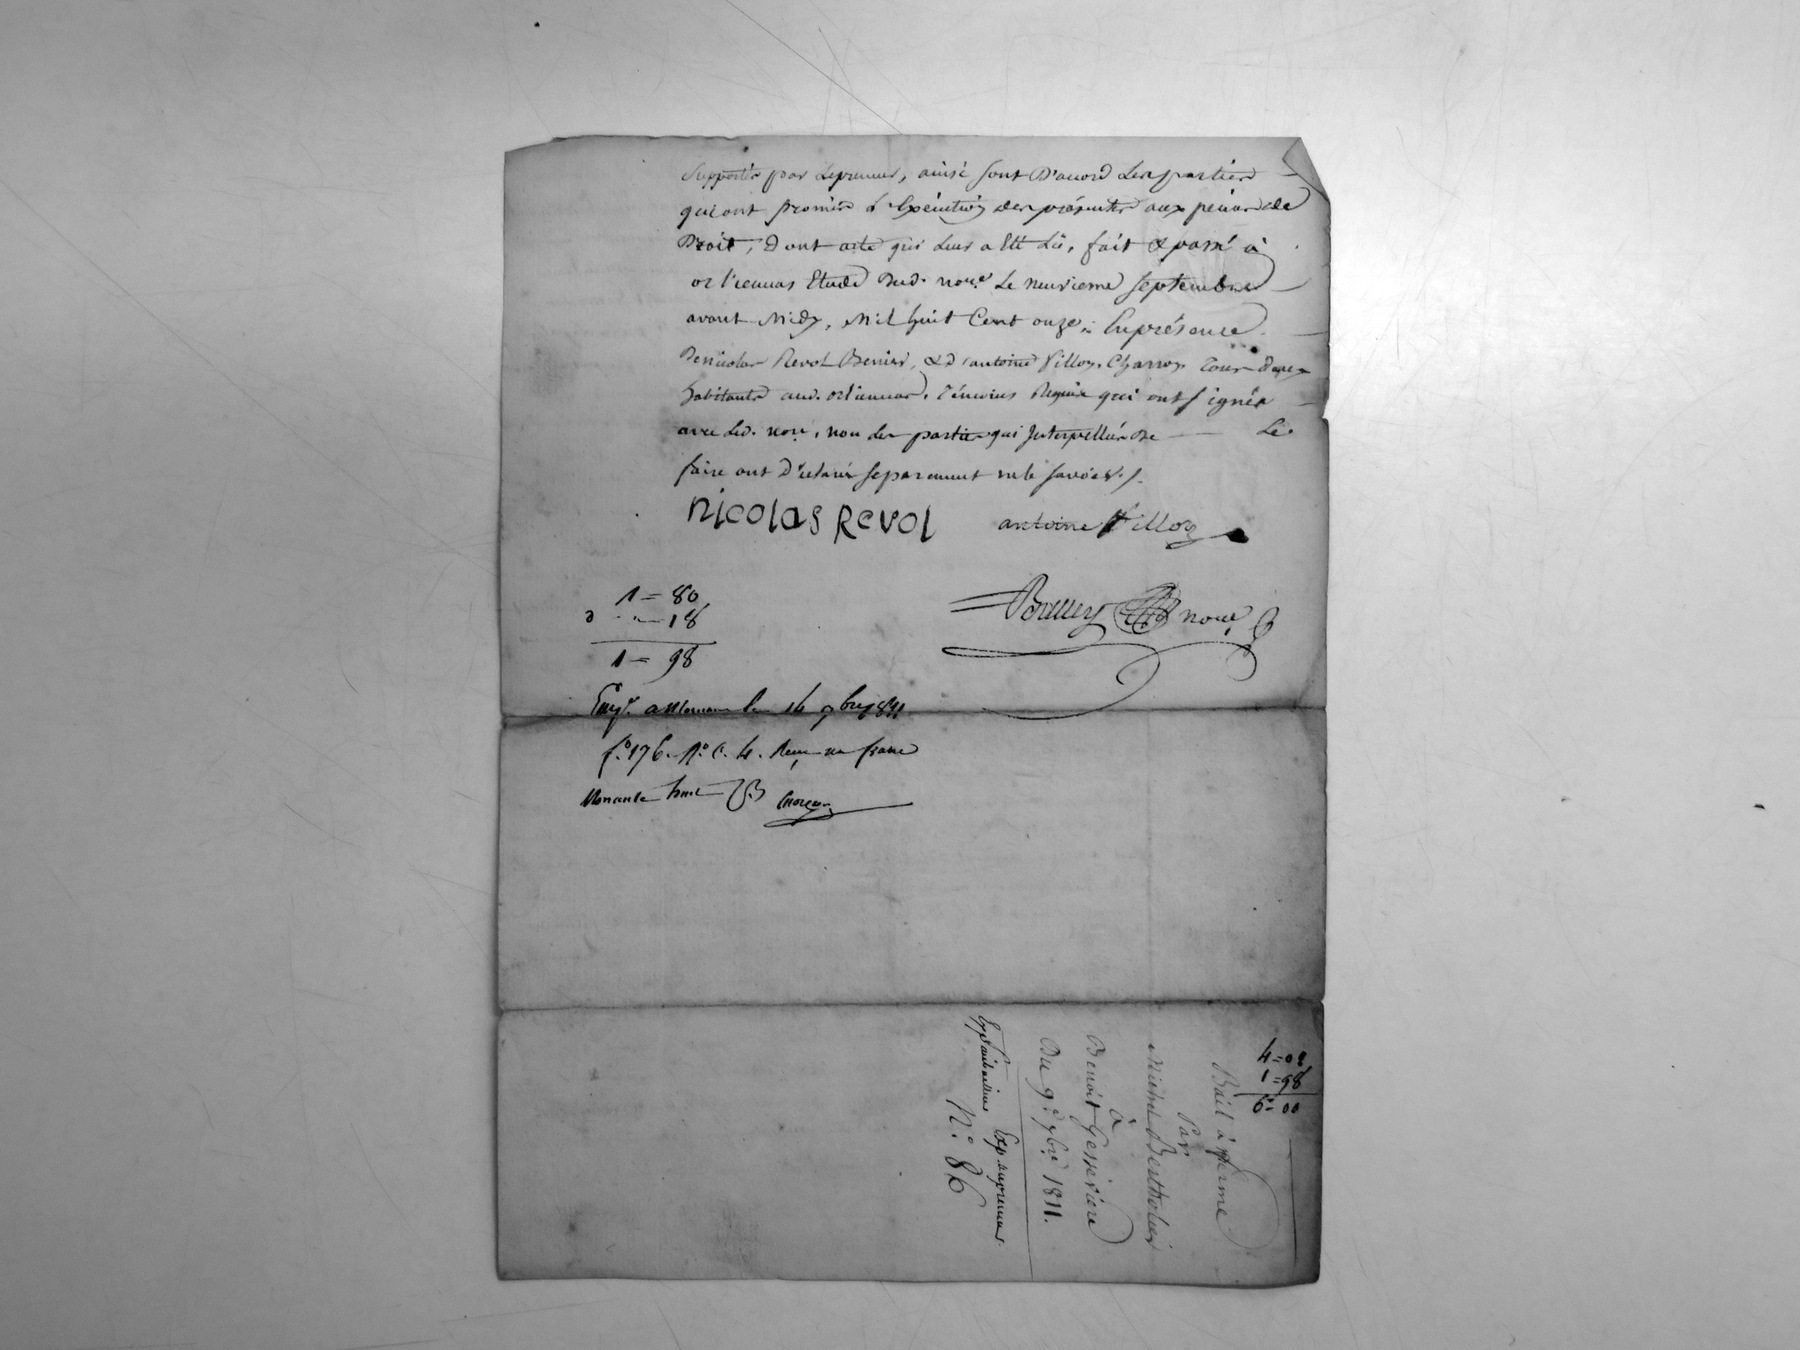 Supportés par Lepreneur, ainsi sont D'accord Les parties
qui ont promis L'Exécution des présentes aux peines de
Droit, Dont acte qui Leur a Eté Lû, fait & passé à
orliennas Etude Dud. no.re Le neuvieme septembre
avant Midy, Mil huit Cent onze, Enprésence
Denicolas Revol & D'antoine Pilloy, Charron Tous Deux
habitants aud. orliennas, Témoins Requis qui ont signés
avec Led. no.re, non Les parties qui Interpellées De Le
faire ont Déclaré separement ne le savoir ./.
nicolas Revol antoine Pilloy
no.re
1 = 80
D .. — 18
1 = 98
Enr. a Mornan le 14 7bre 1811
f.o 176. R.o C. 4. Reçu un franc
Nonante huit
4 = 02
1 = 98
6 = 00
Bail à ferme
Par
Michel Bertholier
à
Benoit
Du 9.e 7bre 1811.
Exp. au preneur
N.o 86